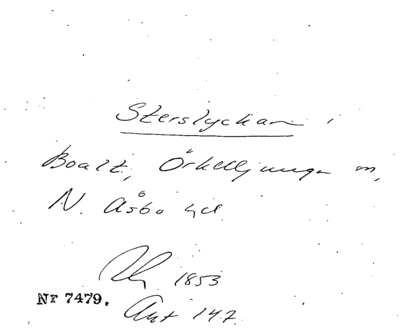 Sterslyckan i
Boalt, Örkelljunga sn,
N. Åsbo hd
1853
Nr 7479.
Avst 147